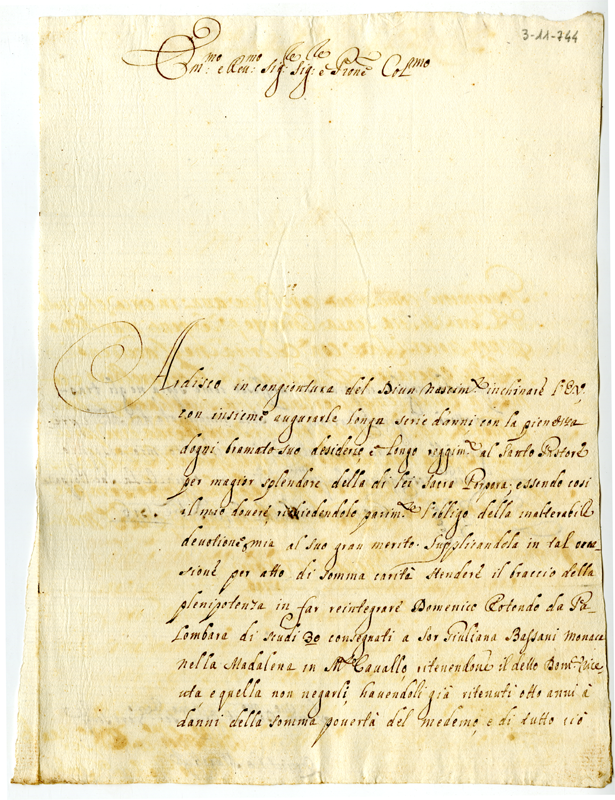 3-11-744
Em:mo e Reu:mo Sig:re Sig:re e Prone Col:mo
Ardisco in congientura del Diuin Nascim:to inchinare l'E.V,
con insieme augurarle longa serie danni con la pienezza
dogni bramato suo desiderio è longo reggim:to al Santo Pastore
per magior splendore della di lei Sacra Porpora; essendo cosi
il mio douere, richiedendolo parim:te l'obligo della inalterabile
deuotione mia al suo gran merito. Supplicandola in tal occa-
sione per atto di somma carità stendere il braccio della
plenipotenza in far reintegrare Domenico Rotondo da Pa-
lombara di scudi 30 consegnati a Sor Giuliana Bassani monaca
nella Madalena in M:te Cauallo, ritenendone il detto Dom:co
uta, e quella non negarli, hauendoli già ritenuti otto anni à
danni della somma pouertà del medemo, e di tutto ciò